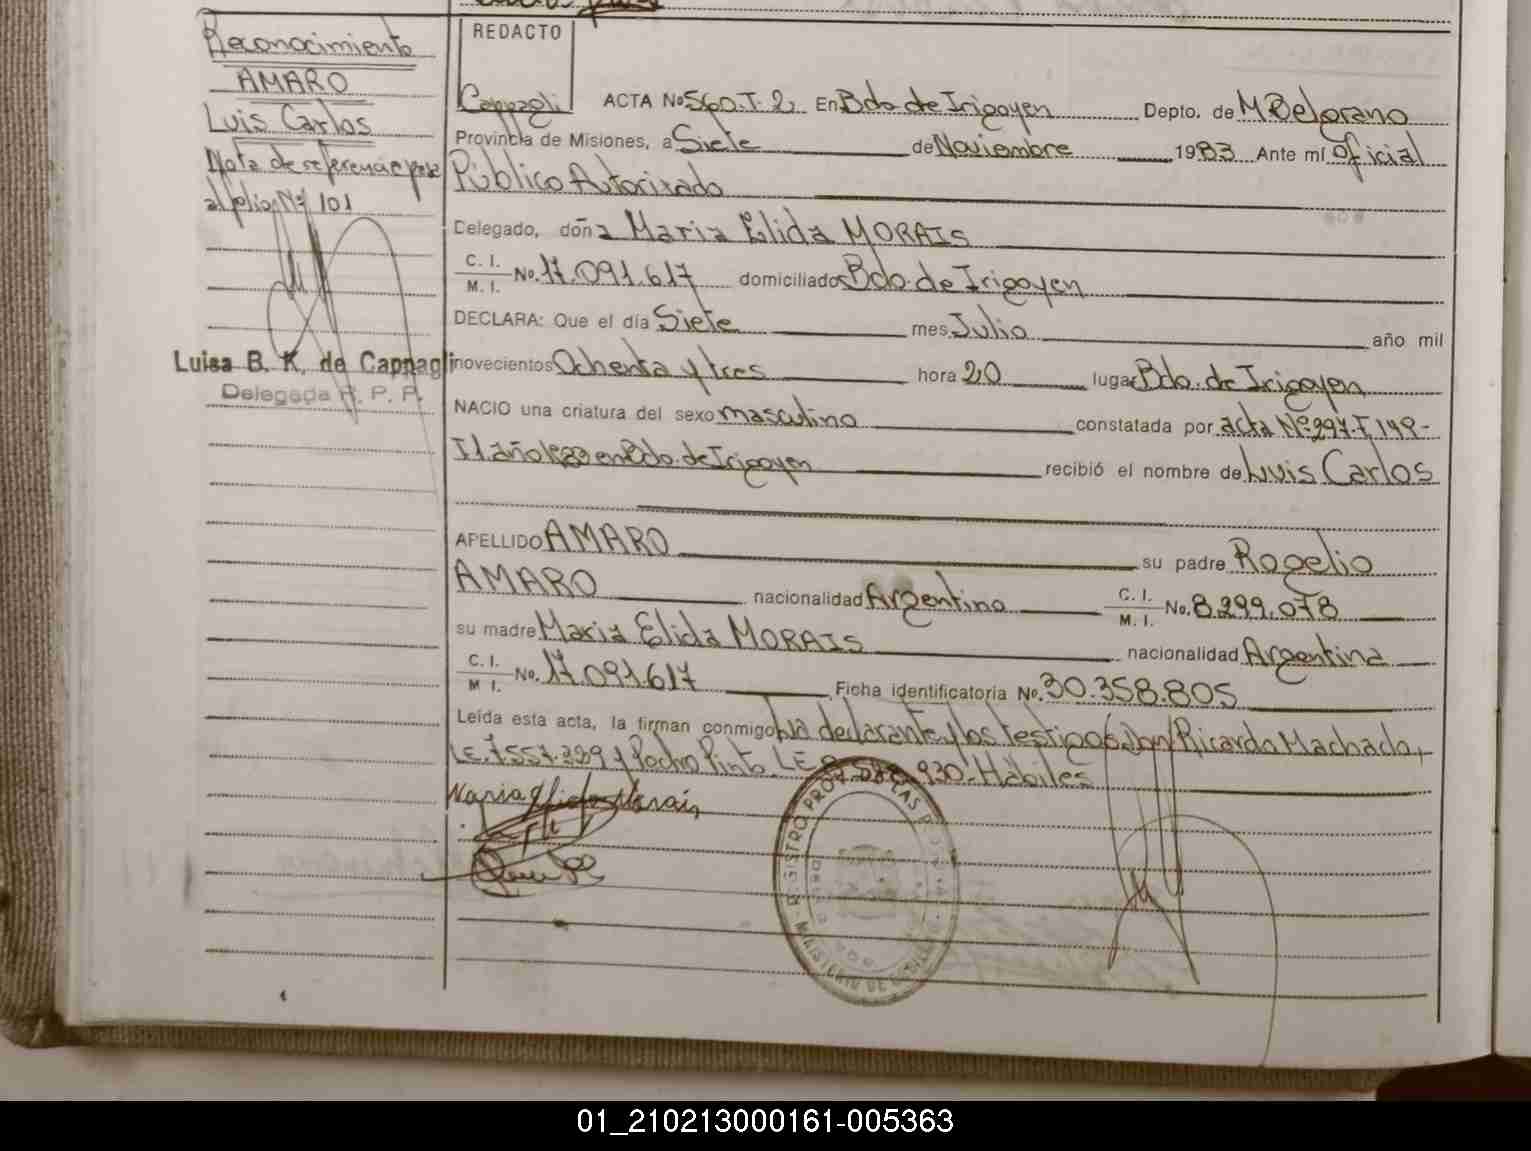 Reconocimiento
AMARO
Luis Carlos
Nota de referencia pase
al folio Nº 101
Luisa B. K. de Cappagli
Delegada R. P. P.
REDACTO
Cappagli ACTA Nº 560. T. 2 En Bdo de Irigoyen Depto. de M Belgrano
Provincia de Misiones, a Siete de Noviembre 1983 Ante mí Oficial
Público Autorizado
Delegado, doña Maria Elida MORAIS
C. I.
M. I. No. 17.091.617 domiciliado Bdo. de Irigoyen
DECLARA: Que el día Siete mes Julio año mil
novecientos Ochenta y tres hora 20 lugar Bdo. de Irigoyen
NACIO una criatura del sexo masculino constatada por acta Nº 297. F 149-
en Bdo. de Irigoyen recibió el nombre de Luis Carlos
APELLIDO AMARO su padre Rogelio
AMARO nacionalidad Argentino C. I.
M. I. No. 8.299.078
su madre Maria Elida MORAIS nacionalidad Argentina
C. I.
M I. No. 17.091.617 Ficha identificatoria No. 30.358.805
Leída esta acta, la firman conmigo La declarante y los testigos Don Ricardo Machado,
LE. 7.557.229 y Pedro Pinto LE 930 Habiles
Maria Elida Morais
REGISTRO PROV. DE LAS PERSONAS
MINISTERIO DE
01_210213000161-005363